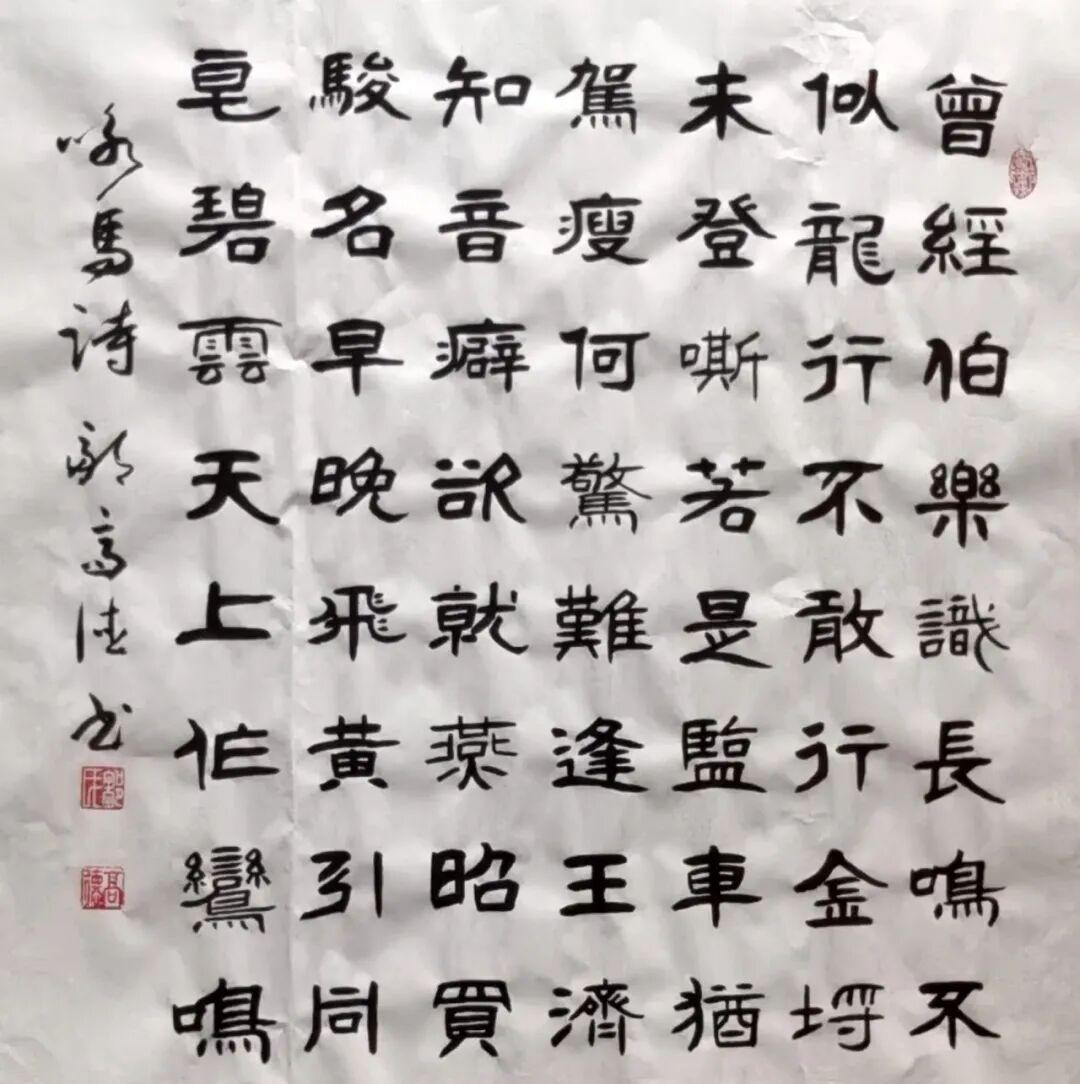 曾經伯樂識長鳴不
似龍行不敢行金埒
未登嘶若是監車猶
駕瘦何驚難逢王濟
知音癖欲就燕昭買
駿名早晚飛黃引同
皂碧雲天上作鸞鳴
咏馬詩 高德书
高德